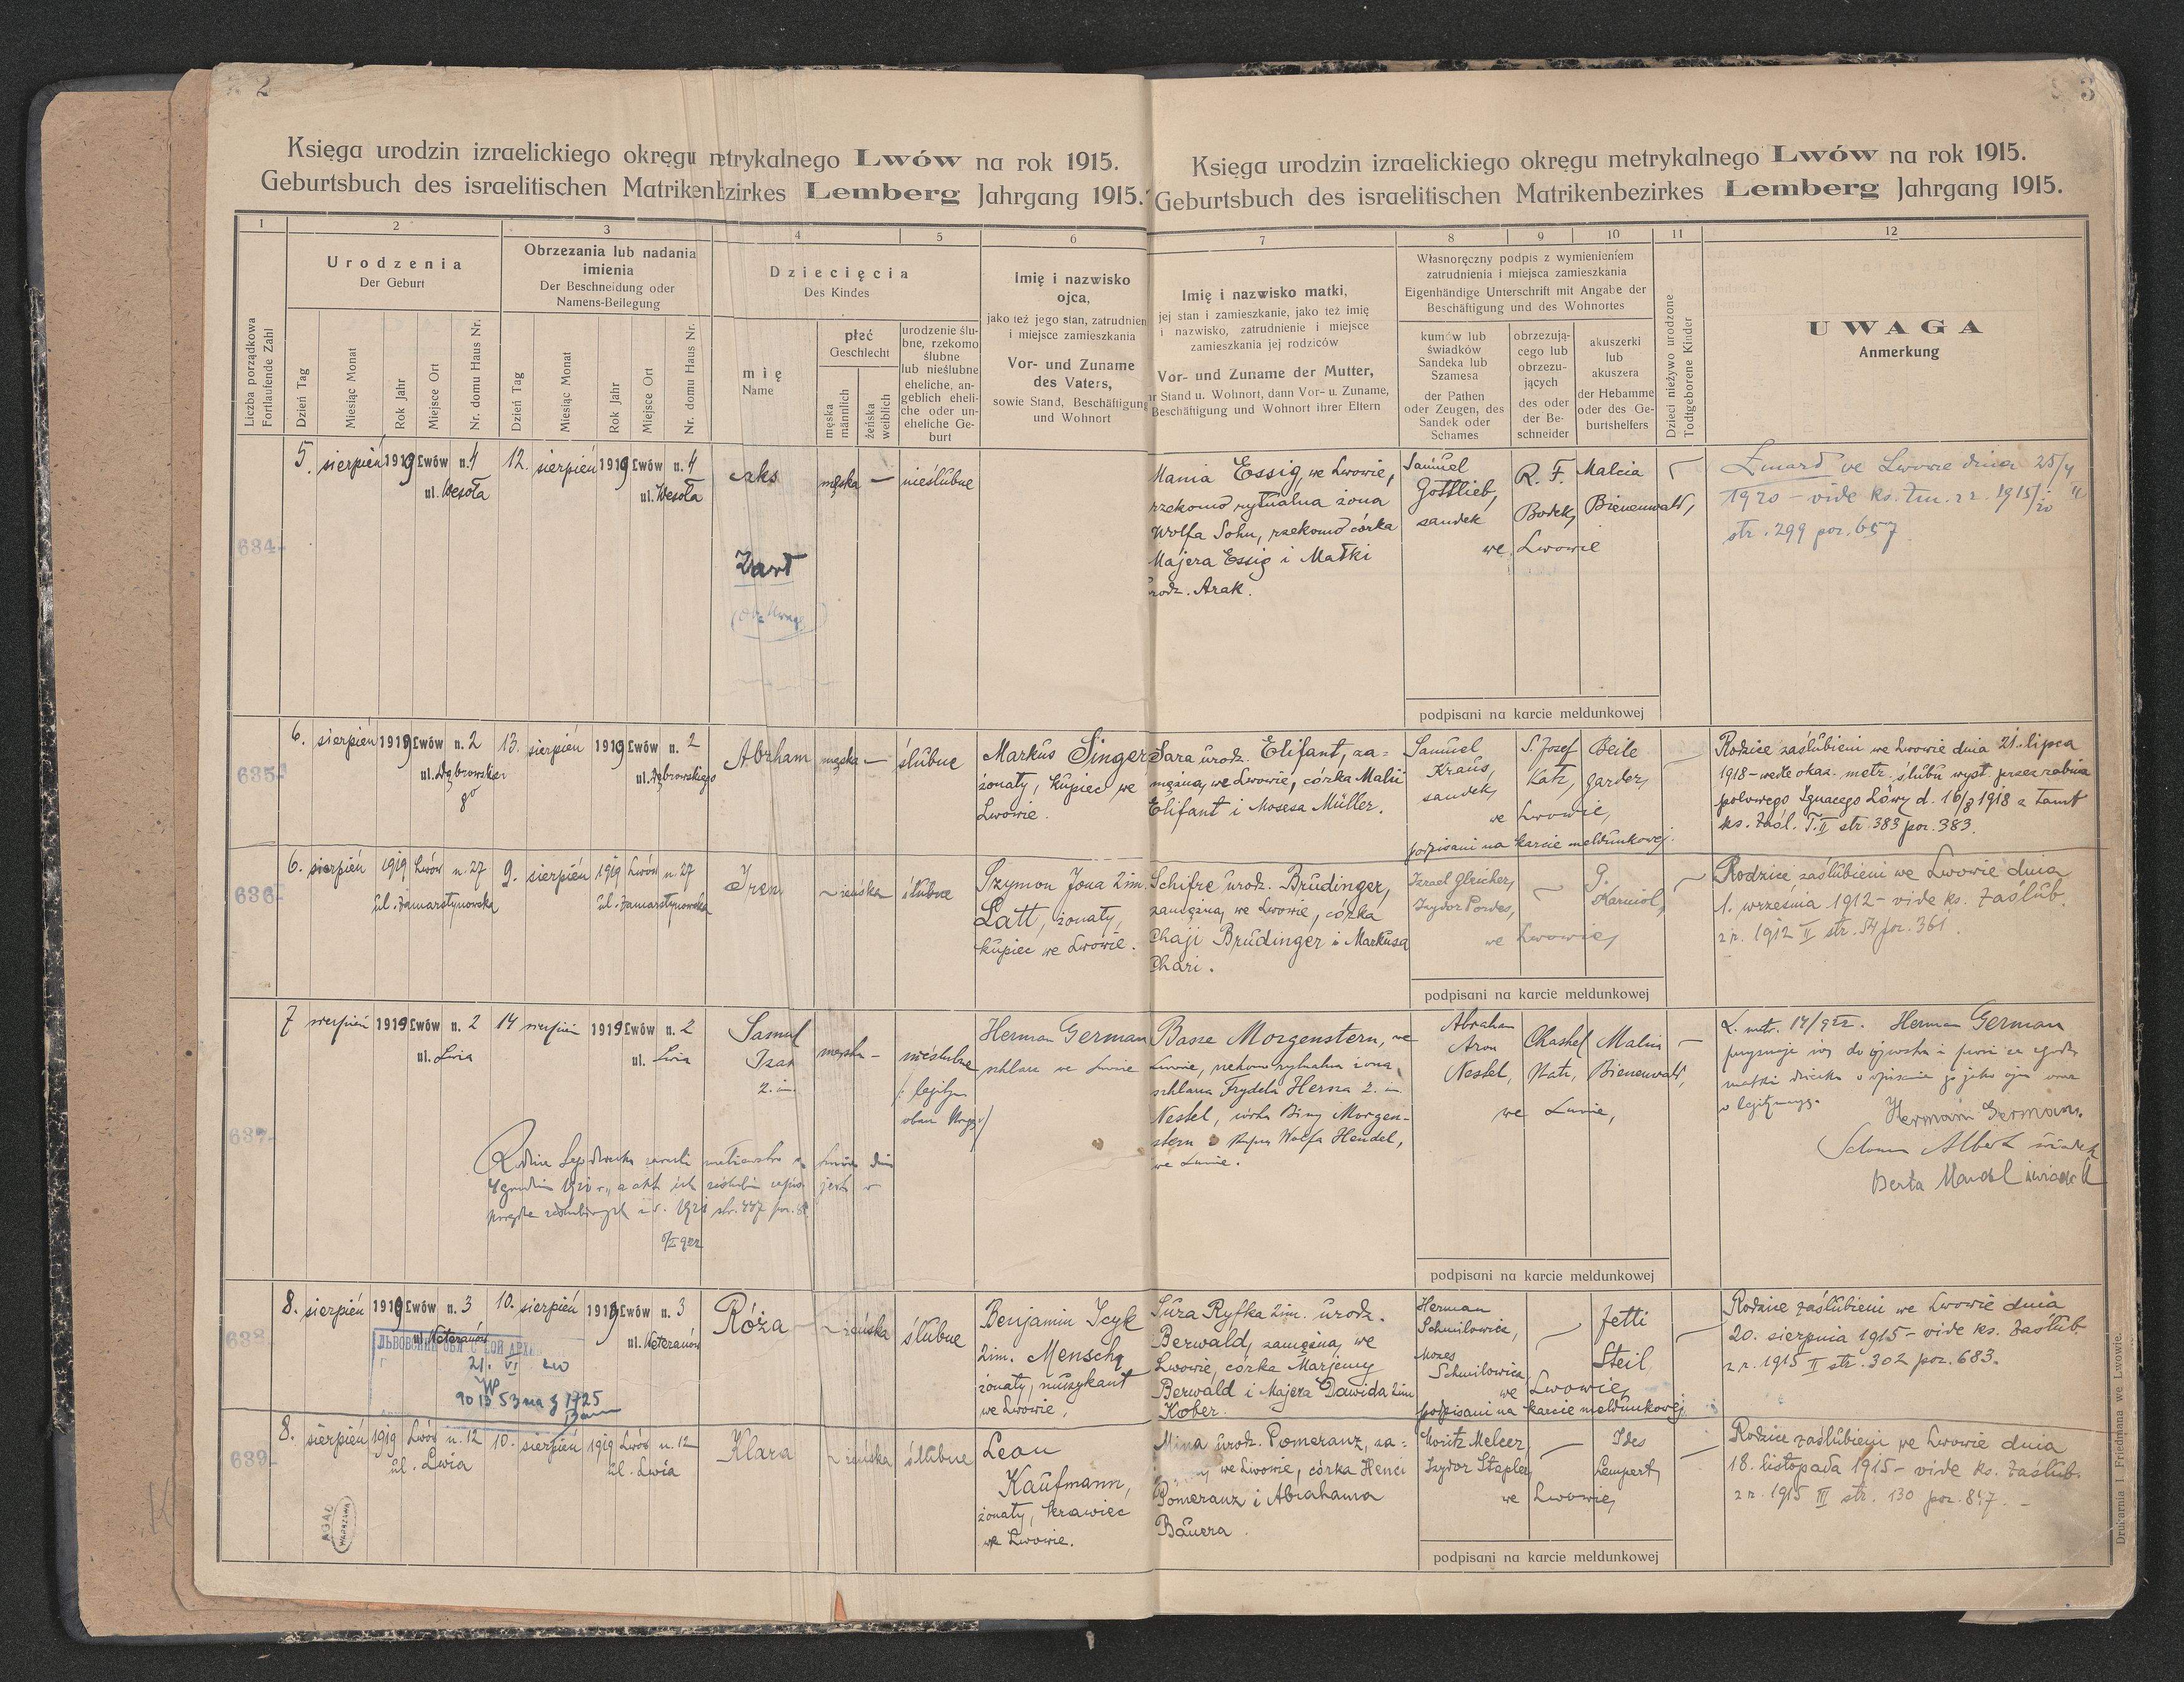 2
Księga urodzin izraelickiego okręgu metrykalnego Lwów na rok 1915.
Geburtsbuch des israelitischen Matrikenbezirkes Lemberg Jahrgang 1915.
1
2
3
4
5
6
Liczba porządkowa
Fortlaufende Zahl
Urodzenia
Der Geburt
Dzień Tag
Miesiąc Monat
Rok Jahr
Miejsce Ort
Nr. domu Haus Nr.
Obrzezania lub nadania
imienia
Der Beschneidung oder
Namens-Beilegung
Dzień Tag
Miesiąc Monat
Rok Jahr
Miejsce Ort
Nr. domu Haus Nr.
Dziecięcia
Des Kindes
mię
Name
płeć
Geschlecht
męska
männlich
żeńska
weiblich
urodzenie ślu-
bne, rzekomo
ślubne
lub nieślubne
eheliche, an-
geblich eheli-
che oder un-
eheliche Ge-
burt
Imię i nazwisko
ojca,
jako też jego stan, zatrudnien
i miejsce zamieszkania
Vor- und Zuname
des Vaters,
sowie Stand, Beschäftigung
und Wohnort
634
5. sierpień 1919 Lwów n. 4
ul. Wesoła
12. sierpień 1919 Lwów n. 4
ul. Wesoła
aks
męska — nieślubne
Zmarł
635
6. sierpień 1919 Lwów n. 2
13. sierpień 1919 Lwów n. 2
ul. Dąbrowskiego
Abraham męska — ślubne
Markus Singer
żonaty, kupiec we
Lwowie.
636
6. sierpień 1919 Lwów n. 27
ul. Zamarstynowska
9. sierpień 1919 Lwów n. 27
ul. Zamarstynowska
Iren
— żeńska ślubne
Szymon Jona 2im.
Latt, żonaty,
kupiec we Lwowie.
637
7 sierpień 1919 Lwów n. 2
ul. Lwia
14 sierpień 1919 Lwów n. 2
ul. Lwia
Samuel
Izak
2. im.
męska — nieślubne
Herman German
we Lwowie
638
8. sierpień 1919 Lwów n. 3
ul. Weteranów
10. sierpień 1919 Lwów n. 3
ul. Weteranów
Róża
— żeńska ślubne
Benjamin Icyk
2im. Mensch,
żonaty, muzykant
we Lwowie,
21. VI
639
8. sierpień 1919 Lwów n. 12
ul. Lwia
10. sierpień 1919 Lwów n. 12
ul. Lwia
Klara
— żeńska ślubne
Leon
Kaufmann,
żonaty, krawiec
we Lwowie.
AGAD
WARSZAWA
3
Księga urodzin izraelickiego okręgu metrykalnego Lwów na rok 1915.
Geburtsbuch des israelitischen Matrikenbezirkes Lemberg Jahrgang 1915.
7
8
9
10
11
12
Imię i nazwisko matki,
jej stan i zamieszkanie, jako też imię
i nazwisko, zatrudnienie i miejsce
zamieszkania jej rodziców
Vor- und Zuname der Mutter,
r Stand u. Wohnort, dann Vor- u. Zuname,
Beschäftigung und Wohnort ihrer Eltern
Własnoręczny podpis z wymienieniem
zatrudnienia i miejsca zamieszkania
Eigenhändige Unterschrift mit Angabe der
Beschäftigung und des Wohnortes
kumów lub
świadków
Sandeka lub
Szamesa
der Pathen
oder Zeugen, des
Sandek oder
Schames
obrzezują-
cego lub
obrzezu-
jących
des oder
der Be-
schneider
akuszerki
lub
akuszera
der Hebamme
oder des Ge-
burtshelfers
Dzieci nieżywo urodzone
Todtgeborene Kinder
UWAGA
Anmerkung
Mania Essig, we Lwowie,
rzekomo rytualna żona
Wolfa Sohn, rzekomo córka
Majera Essig i Matki
urodz. Arak.
Samuel
Gottlieb,
sandek
R. F.
Bodek,
Malcia
Bienenwald,
we Lwowie
podpisani na karcie meldunkowej
Zmarł we Lwowie dnia 25/4
1920 – vide ks. zm. z r. 1915/20 II
str. 299 poz. 657.
Sara urodz. Elifant, za=
mężna, we Lwowie, córka Malii
Elifant i Mosesa Müller.
Samuel
Kraus,
sandek,
S. Josef
Katz,
Beile
Garder,
we Lwowie,
podpisani na karcie meldunkowej.
Rodzice zaślubieni we Lwowie dnia 21. lipca
1918 – wedle okaz. metr. ślubu wyst. przez rabina
polowego Ignacego Löwy d. 16/8 1918 z tamt
ks. zaśl. T. II str. 383 poz. 383.
Schifre urodz. Brudinger,
zamężna, we Lwowie, córka
Chaji Brudinger i Markusa
Chari.
Izrael Gleicher,
Izydor Pordes,
—
G.
Karniol,
we Lwowie,
podpisani na karcie meldunkowej
Rodzice zaślubieni we Lwowie dnia
1. września 1912 – vide ks. zaślub.
z r. 1912 II str. 54 poz. 361.
Basze Morgenstern, we
Lwowie, rzekomo rytualna żona
Frydela Hersza 2. im
Nestel, córka Biny Morgen-
stern i Wolfa Hendel,
we Lwowie.
Abraham
Aron
Nestel,
Chaskel
Katz,
Malcia
Bienenwald,
we Lwowie,
podpisani na karcie meldunkowej
Herman German
Hermann German.
Albert świadek
Berta Mandl świadek
Sura Ryfka 2im. urodz.
Berwald, zamężna, we
Lwowie, córka Marjemy
Berwald i Majera Dawida 2im
Kober.
Herman
Schmilowicz,
Mozes
Schmilowicz,
—
Jetti
Steil
we Lwowie,
podpisani na karcie meldunkowej
Rodzice zaślubieni we Lwowie dnia
20. sierpnia 1915 – vide ks. zaślub.
z r. 1915 II str. 302 poz. 683.
Mina urodz. Pomeranz, za=
we Lwowie, córka Henci
Pomeranz i Abrahama
Bauera.
Moritz Melcer,
Izydor Stapler,
—
Ides
Lempert,
we Lwowie,
podpisani na karcie meldunkowej
Rodzice zaślubieni we Lwowie dnia
18. listopada 1915 – vide ks. zaślub.
z r. 1915 III str. 130 poz. 847. –
Drukarnia I. Friedmana we Lwowie.